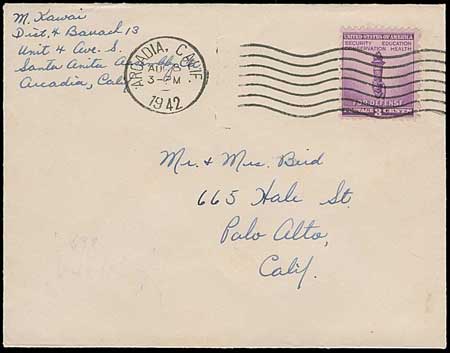 M. Kawai
Dist. 4 Barrack 13
Unit 4 Ave. S.
Santa Anita
Arcadia, Cal
ARCADIA, CALIF.
AUG 8
3-PM
1942
UNITED STATES OF AMERICA
SECURITY EDUCATION
CONSERVATION HEALTH
FOR DEFENSE
POSTAGE 3 CENTS
Mr. & Mrs. Bird
665 Hale St.
Palo Alto,
Calif.